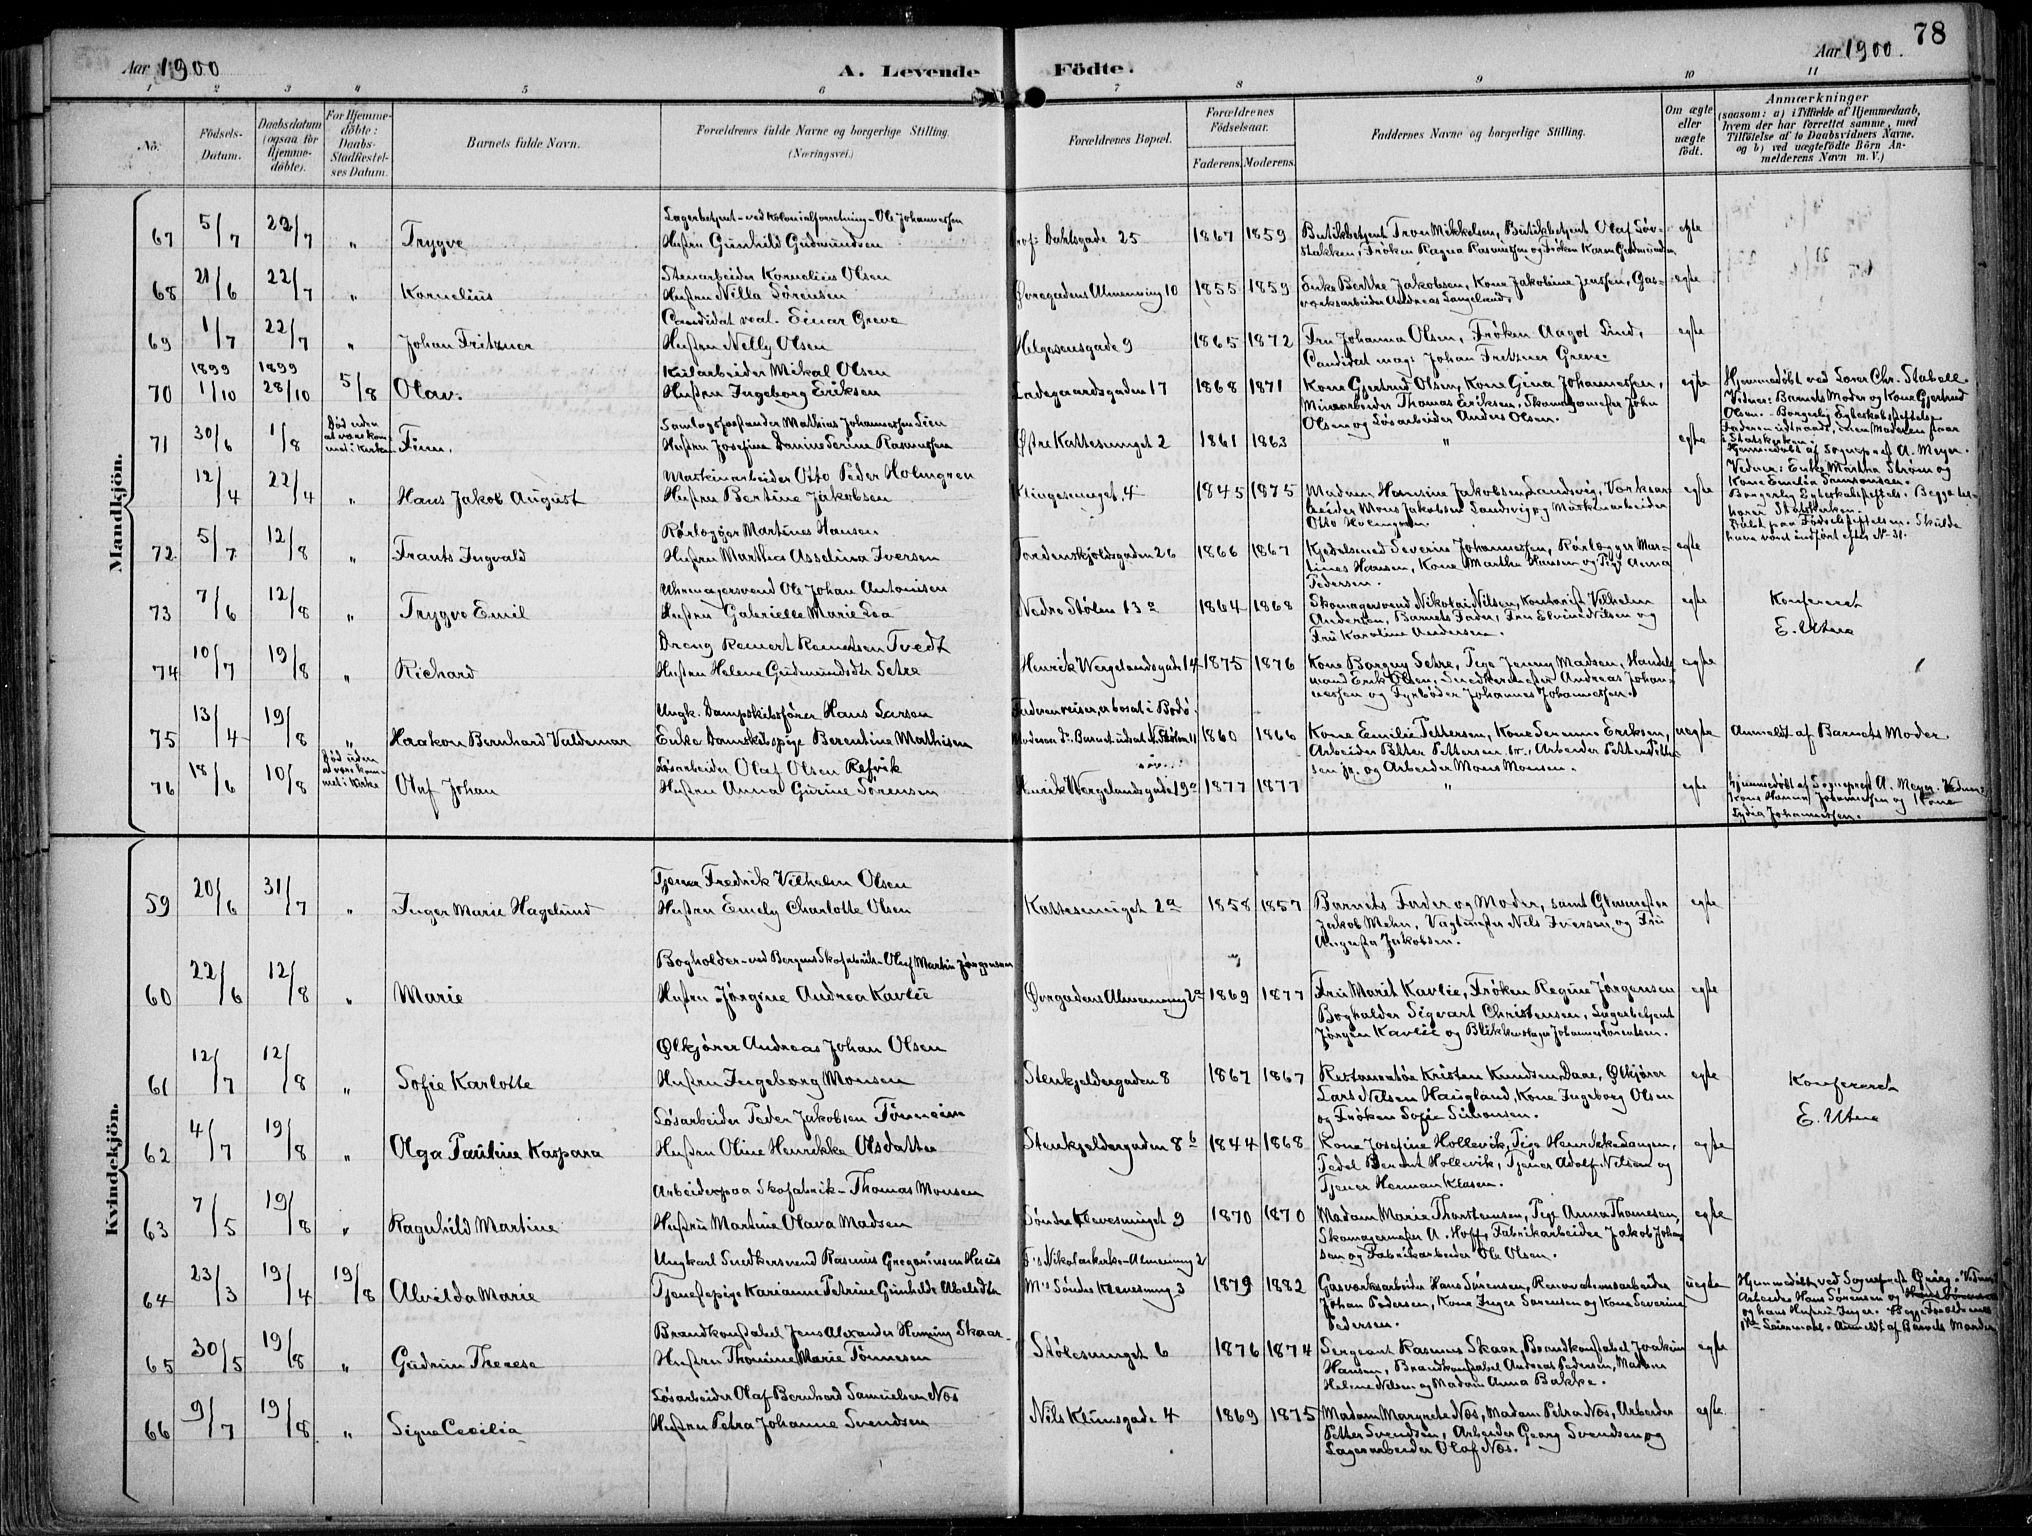 78
Aar 1900
A. Levende
Födte.
Aar 1900.
1 2 3 4 5 6 7 8 9 10 11
No.
Födsels-
Datum.
Daabsdatum
(ogsaa for
Hjemme-
döbte).
For Hjemme-
döbte:
Daabs-
Stadfæstel-
ses Datum.
Barnets fulde Navn.
Forældrenes fulde Navne og borgerlige Stilling.
(Næringsvei.)
Forældrenes Bopæl.
Forældrenes
Födselsaar.
Faderens. Moderens.
Faddernes Navne og borgerlige Stilling.
Om ægte
eller
uægte
födt.
Anmærkninger
(saasom: a) i Tilfælde af Hjemmedaab,
hvem der har forrettet samme, med
Tilföielse af to Daabsvidners Navne,
og b) ved uægtefödte Börn An-
melderens Navn m. V.)
Mandkjön.
67 5/7 22/7 " Trygve
Lagerbetjent - ved Kolonialforretning - Ole Johannessen
Hustru Gunhild Gudmundsen
Prof: Dahlsgade 25 1867 1859
Butikbetjent Tron Mikkelsen, Butikbetjent Olaf Söv-
stakken, Fröken Ragna Rasmussen og Fröken Karen Gudmundsen
egte
68 21/6 22/7 " Kornelius
Stenarbeider Kornelius Olsen
Hustru Nilla Sörensen
Øvregadens Almenning 10 1855 1859
Enke Berthe Jakobsen, Kone Jakobine Jenssen, Gas-
verksarbeider Andreas Langeland.
egte
69 1/7 22/7 " Johan Fritzner
Candidat real. Einar Greve
Hustru Nelly Olsen
Helgesensgade 9 1865 1872
Fru Johanna Olsen, Fröken Aagot Lind,
Candidat mag: Johan Fritzner Greve.
egte
1899 1899
70 1/10 28/10 5/8 Olav.
Kularbeider Mikal Olsen
Hustru Ingeborg Eriksen
Ladegaardsgaden 17 1868 1871
Kone Gjertrud Olsen, Kone Gina Johannessen,
Minearbeider Thomas Eriksen, Skomagermester John
Olsen og Lösarbeider Anders Olsen.
egte
Hjemmedöbt ved Lærer Chr. Staboll.
Vidner: Barnets Moder og Kone Gjertrud
Olsen. - Borgerlig Egteskabsstiftelse
Faderen udtraadt, men Moderen staar
i Statskirken.
71 30/6 1/8
Död uden
at være kom-
met i Kirken
Finn.
Samlagsbestander Mathias Johannessen Lien
Hustru Josefine Danine Serine Rasmussen
Østre Kattesmuget 2 1861 1863 " egte
Hjemmedöbt af Sognepræst A. Meyer.
Vidner: Enke Martha Ström og
Kone Emilie Samsonsen.
12/4 22/4 " Hans Jakob August
Maskinarbeider Otto Peder Holmgren
Hustru Bertine Jakobsen
Klingesmuget 4 1845 1875
Madam Hansine Jakobsen Sandsvig, Verksar-
beider Mons Jakobsen Sandsvig og Maskinarbeider
Otto Holmgren.
egte
Borgerlig Egteskabsstiftels. Begge til-
hører Statskirken.
Döbt paa Födselsstiftelsen. Skulde
have været indfört efter No 31.
72 5/7 12/8 " Frants Ingvald
Rörlægger Martines Hansen
Hustru Martha Asseline Iversen
Tordenskjoldsgaden 26 1866 1867
Kjedelsmed Severin Johannessen, Rörlægger Mar-
tines Hansen, Kone Martha Hansen og Pige Anna
Pedersen.
egte
73 7/6 12/8 " Trygve Emil
Uhrmagersvend Ole Johan Antonisen
Hustru Gabrielle Marie Lea
Nedre Stölen 13a 1864 1868
Skomagersvend Nikolai Nilsen, Kontorist Vilhelm
Andersen, Barnets Fader, Fru Elvine Nilsen og
Fru Karoline Andersen.
egte
Konfereret
E. Utne
74 10/7 19/8 " Richard
Dreng Reinert Reinertsen Tvedt
Hustru Helene Gudmundsdt Setre
Henrik Wergelandsgade 14 1875 1876
Kone Borgny Setre, Pige Jenny Madsen, Handels-
mand Erik Olsen, Snedkermester Andreas Johan-
nessen og Fyrböder Johannes Johannessen.
egte
75 13/4 19/8 " Haakon Bernhard Valdemar
Ungk. Dampskibsförer Hans Larsen
Enke Damskibspige Berentine Mathisen
Faderen reiser, er bosat i Bodö.
Moderen 1860 1866
Kone Emilie Pettersen, Kone Serenne Eriksen,
Arbeider Petter Pettersen sr., Arbeider Petter Petter-
sen jr. og Arbeider Mons Monsen.
uegte
Anmeldt af Barnets Moder.
76 18/6 10/8
Död uden
at være kom-
met i Kirke
Olaf Johan
Lösarbeider Olaf Olsen Refvik
Hustru Anna Gurine Sörensen
Henrik Wergelandsgade 19a 1877 1877 " egte
Hjemmedöbt af Sognepræst A. Meyer. Vidner:
Kone Hanna Johannessen og Kone
Lydia Johannessen.
Kvindekjön.
59 20/6 31/7 " Inger Marie Hagelund
Tjener Fredrik Vilhelm Olsen
Hustru Emely Charlotte Olsen
Kattesmuget 2a 1858 1857
Barnets Fader og Moder, samt Glasmester
Jakob Mehn, Vagtmester Nils Iversen og Fru
Augusta Jakobsen.
egte
60 22/6 12/8 " Marie
Bogholder - ved Bergens Skofabrik - Oluf Martin Jörgensen
Hustru Jörgine Andrea Kavlie
Övregadens Almenning 2a 1869 1877
Fru Marit Kavlie, Fröken Regine Jörgensen
Bogholder Sigvart Christensen, Lagerbetjent
Jörgen Kavlie og Blikkenslager Johannes Lorentsen.
egte
61 12/7 12/8 " Sofie Karlotte
Ölkjörer Andreas Johan Olsen
Hustru Ingeborg Monsen
Stenkjeldergaden 8 1867 1867
Restauratör Kristen Knudsen Dare, Ölkjörer
Lars Nilsen Haugland, Kone Ingeborg Olsen
og Fröken Sofie Simonsen.
egte
Konfereret
E. Utne
62 4/7 19/8 " Olga Pauline Kaspara
Lösarbeider Peder Jakobsen Tönneim
Hustru Oline Henrikke Olsdatter
Stenkjeldergaden 8b 1844 1868
Kone Josefine Hollevik, Pige Henrikke Langen,
Pedel Berent Hollevik, Tjener Adolf Nilsen og
Tjener Herman Klasen.
egte
63 7/5 19/8 " Ragnhild Martine
Arbeider paa Skofabrik - Thomas Monsen
Hustru Martine Olava Madsen
Söndre Klevesmuget 9 1870 1870
Madam Marie Thorstensen, Pige Anna Thomesen,
Skomagermester A. Hoff, Fabrikarbeider Jakob Johan-
sen og Fabrikarbeider Ole Olsen.
egte
64 23/3 19/4 19/8 Alvilda Marie
Ungkarl Snedkersvend Rasmus Gregoriusen Hesius
Tjenestepige Karianne Petrine Gunhilde Abelsdtr
F's Nikolaikirke-Almenning 2
M's Söndre Klevesmug 3 1879 1882
Gasverksarbeider Hans Sörensen, Renovationsarbeider
Johan Pedersen, Kone Inger Sörensen og Kone Severine
Pedersen.
uegte
Hjemmedöbt ved Sognepræst Grieg. Vidner:
Arbeider Hans Sörensen og
og hans Hustru Inger. Begge Forældrenes
1ste Leiermaal. Anmeldt af Barnets Moder.
65 30/5 19/8 " Gudrun Therese
Brandkonstabel Jens Alexander Henning Skaar
Hustru Thomine Marie Tönnesen
Stölesmuget 6 1876 1874
Sergeant Rasmus Skaar, Brandkonstabel Joakim
Hansen, Brandkonstabel Andreas Pedersen, Madam
Helene Nilsen og Madam Anna Bakke.
egte
66 9/7 19/8 " Signe Cecilia
Lösarbeider Olaf Bernhard Samuelsen Næs
Hustru Petra Johanne Svendsen
Nils Klimsgade 4 1869 1875
Madam Margrete Næs, Madam Petra Næs, Arbeider
Petter Svendsen, Arbeider Georg Svendsen og
Lagerarbeider Olaf Næs.
egte